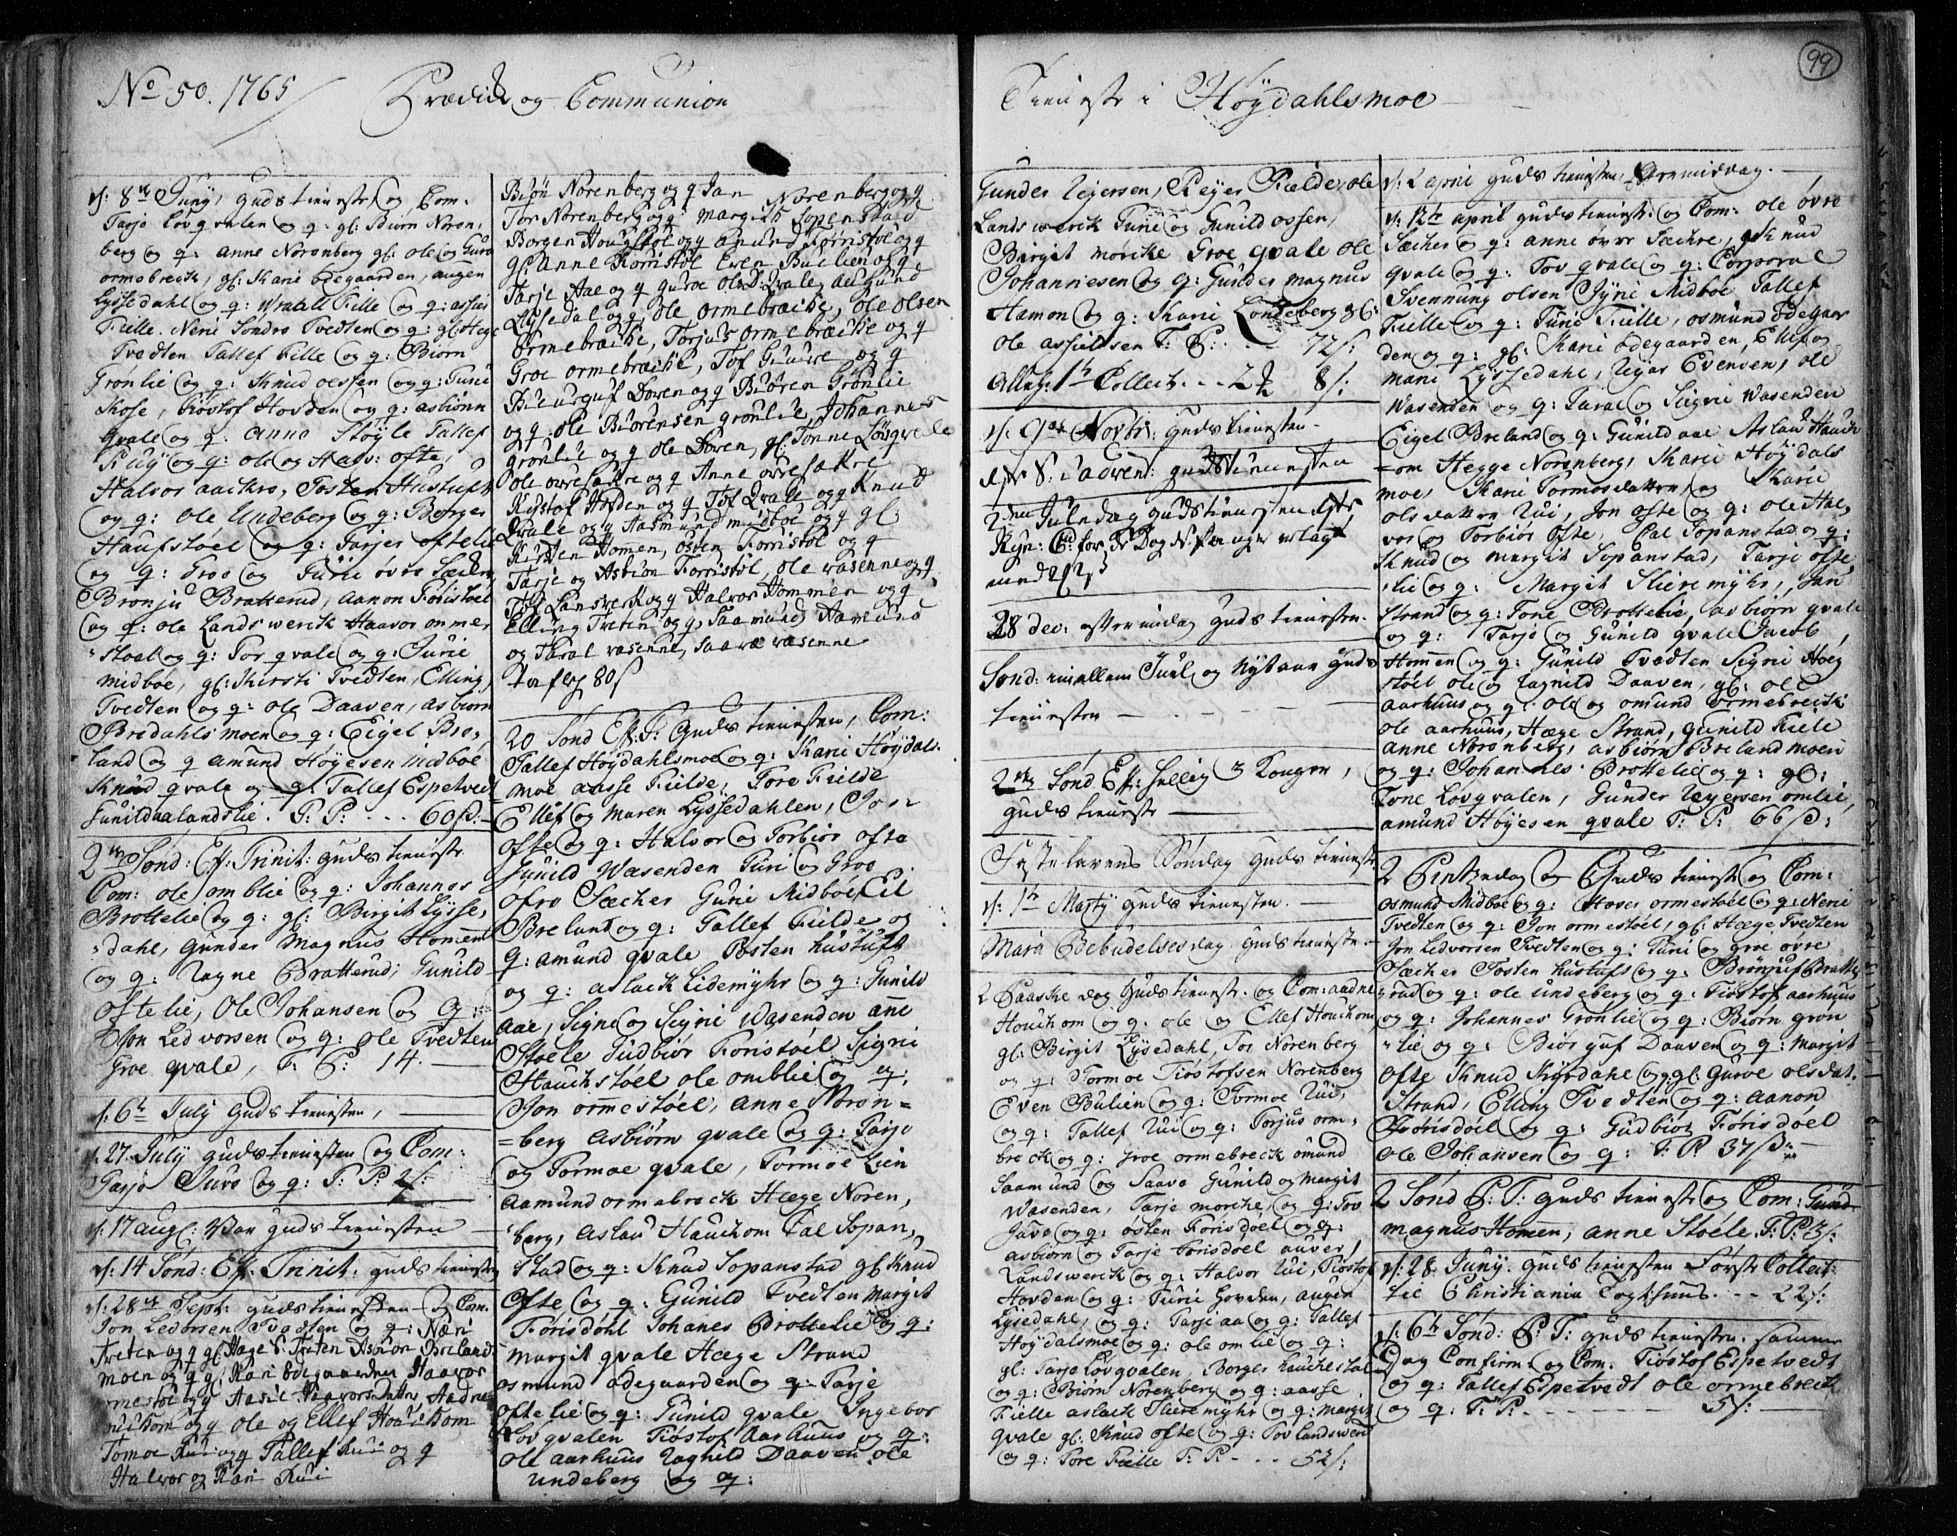 No 50. 1765 Prædick og Communion
d: 8de Juny, Guds tienest og Com.
Tarjo Løvqvalen og q: gl: Biørn Noron,
berg og q: anne Noronberg gl: ole og Guro
ormebreck, gl: Kari ødegaarden, augen
Lyssedahl og q: Wraall Fille og q: asser
Fille. Neri Sondro Tvedten og q: gl: Hege
Tvedten Tallef Fille og q: Biørn
Grønlie og q: Knud olssen og q: Turi
Kose, Kiøstof Hovden og q: asbiønn
Qvale og q: anno Støyle Tallef
og q: ole og Halv: ofte,
Halvor aackro, Tosten Hustuft
og q: ole Undeberg og q: Borger
Haufstøel og q: Tarjer oftelie
og q: Groo og Turie ovro Sæcher
Bronju Bratterud, aanon Foristoel
og q: ole Landswerck Haavor ormes
støel og q: Tor qvale og q: Jurie
midboe, gl: Kirsti Tvedten, Elling
Tvedten og q: ole Daaven, asbiørn
Brodahls moen og q: Eigel Bre,
land og q amund Høyesen midboe
Knud qvale og q: Tallef Espetved
Gunild aalandslie. T: P: - - - 60 s:
2den Sønd: Ef: Trinit: Guds tienest
Com: ole omblie og q: Johannes
Brottelie og q: gl: Birgit Lysse,
dahl, Gunder Magnus Homen
og q: Ragne Bratterud, Gunild
oftelie, Ole Johansen og q:
Jon Ledvorsen og q: ole Tvedten
Groe qvale, T: P: 14.
d: 6te July Guds tienesten,
d: 27. July Guds tienesten og Com:
Tarjo Juvo og q: T: P: 2 s:
d: 17 aug: Var Guds tienesten
d: 14 Sønd: Ef: Trinit: guds tienesten
d: 28de Sept: guds tienesten og Com:
Jon Ledvorsen Tvedten og q: Næri
Treten og q gl: Hæge S: Treten Asbiøn Breland
moen og q gl: Kari Ødegaarden Haavor
ormestøl og q Aasie Haavorsdatter Aadne
Huchom og q ole og Ellef Houchom
Tomoe Rui og q Tallef Rui og q
Halvor og Kari Rui
Biøn Norenberg og q Jan Norenberg og q
Tor Norenberg og q margit Sopenstad
Borgen Hougstøl og q Anund Forristøl og q
gl: Anne Forristøl Even Buelien og q
Tarje Aae og q Guroe olsd: Qvale, Aelgund
Lysedal og q, ole ormebrecke, ole olsen
ormebrecke, Torjus ormebrecke og q
Groe ormebrecke, Tof Giuure og q
Biuurguf Doren og q Biören Grönlie
og q ole Biörensen grönlie Johannes
grönlie og q ole Doren, gl: Tonne Løvqvale
ole ovresakre og q Anne ovresakre
Kiøstof Hofden og q Tof Qvale og q Knud
Qvale og q Aasmund midboe og q gl:
Kirsten Hommen, østen Forristøl og q
Tarje og Asbiøn Forristøl, ole vasenne og q
Tof Lansverk og q Halvor Hommen og q
Elling Treten og q Saamund, Aamund
og Taral vasenne, Saave vasenne
Tafley 80 s
20 Sønd Ef: T: Guds tienesten, Com:
Tallef Høydahlsmoe og q: Karie Høydals-
moe aasse Fielde, Tore Fielde
Ellef og Maren Lyssedahlen, Jon
ofte og q: Halvor og Torbiør ofte
Gunild Wasenden Turi og Groo
ofro Sæcher Gurie Midboe Eil
Breland og q: Tallef Fielde og
q: amund qvale Tosten Hustuft
og q: aslack Lidemyhr og q: Gunild
aae, Signe og Sigrie Wasenden ane
Støele Gudbiør Foristoel Sigri
Hauchstøel ole omblie og q:
Jon ormestøel, anne Noron=
=berg asbiørn qvale og q: Tarjo
og Tormoe qvale, Tormoe Lien
aamund ormebreck Hæge Noren,
berg, aslau Hauchom Pal Sopan,
stad og q: Knud Sopanstad gl: Knud
Ofte og q: Gunild Tvedten Margit
Forisdøhl Johanes Brottelie og q:
margit qvale Hæge Strand
osmund ødegaarden og q: Tarje
oftelie og q: Gunild qvale Ingebor
Lovqvalen Tiøstof Aarhuus og q:
ole aarhuus Ragnild Daaven ole
undeberg og q:
99
Tieneste i Høydahlsmoe
Gunder Rejersen, Reyer Fielde, ole
Landswerck Turie og Gunild ossen,
Birgit mørcke Groe qvale ole
Johannesen og q: Gunder magnus
Hamon og q: Karie Londeberg &c:
ole assieldsen T: P: 72 s:
Alleg: 1te Collect: - - 2 8 s:
d: 9de Novbr: Guds tienesten -
d: S: i advent: guds tienesten
2den Juledag guds tienesten
28 dec: aftermidag guds tienesten.
Sønd: imellem Juel og Nytaar Guds
tienesten
2de Sønd Ef: Hellig 3 Konger,
guds tieneste
Fastelavens Søndag Guds tieneste
d: 1te Marty Guds tienesten.
Mara Bebudelses dag Guds tieneste
2 Paaske dag Guds tienest. og Com: aadne
Houchom og q: ole og Ellef Houchom
gl: Birgit Lysedahl, Tor Norenberg
og q: Tormoe Tiøstofsen Norenberg
Even Bulien og q: Tormoe Rui,
og q: Tallef Rui og q: Torjus orm,
breck og q: Groe ormebreck omund
Saamund og Saavo Gunild og Margit
Wasenden, Tarje morcke, og q: Tov
Juve og q: osten Forisdoel og q:
asbiørn og Tarje Forisdoel auver,
Landswerck og q: Halvor Rui, Tiøstof
Hovden og q: Turie Hovden, augen
Lysedahl, og q: Tarje aa og q: Tallef
Høydalsmoe og q: ole omlie og q:
gl: Tarjo Løvqvalen, Borger Hauchestøel
og q: Biørn Norenberg og q: aasse
Fielle aslack Slieremyhr og q: Margit
Qvale gl: Knud ofte og q: Tov Landswerck
og q: Tore Fielle T: P: - - - 52 s:
d: 2 april Guds tienesten, formiddag.
d: 12te april Guds tienest og Com: ole øvre
Sæcher og q: anne øvre Sæchre, q: Knud
qvale og q: Tov qvale og q: Corporal
Svennung olsen Jyrie Midboe Tallef
Fielle og q: Turie Fielle, osmund ødegaar
den og q: gl: Karie ødegaarden, Ellef og
Mari Lyssedahl, Reyar Evensen, ole
Wasenden og q: Taral og Sigrie Wasenden
Eigel Breland og q: Gunild aae Aslau Hauch
=om Hegge Norenberg, Karie Høydals
moe, Karie Tormosdatter, og Karie
olsdatter Rui, Jon ofte og q: ole Hal,
vor og Torbiør Ofte, Pal Sopanstad og q:
Knud og margit Sopanstad, Tarje ofte,
lie og q: Margit Slieremyhr, Jan
Strand og q: Tone Brottelie, asbiørn qvale
og q: Tarje og Gunild qvale Jacob,
Hommen og q: Gunild Tvedten Sigrie Hoeg
støel ole og Ragnild Daaven, gl: ole
aarhuus og q: ole og omund ormebreck
ole aarhuus, Hæge Strand, Gunild Fiele
anne Noronberg, asbiørn Breland moen
og q: Johannes Brottelie og q: gl:
Tone Løvqvalen, Gunder Reyersen omlie,
amund Høyesen qvale T: P: 66 s:
2 Pintzedag Guds tieneste og Com:
osmund Midboe og q: Hover ormestoel og q: Nerie
Tvedten og q: Jon ormestoel, gl: Hæge Tvedten
Jon Ledvorsen Tvedten og q: Turi og Groe ovre
Sæcher Tosten Hustuft og q: Brønjuf Bratte
rud og q: ole undeberg og q: Tiøstof aarhuus
og q: Johannes Gronlie og q: Biørn gron
lie og q: Biørguf Daaven og q: Margit
Ofte Knud Kyrdahl og q: gl: Gurve olsdat.
Strand, Elling Tvedten og q: aanon
Forisdoel og q: Gudbiør Forisdoel
ole Johansen og q: T: P 37 s:
2 Sønd P: T: Guds tienest og Com: Gund
magnus Homen, anne Støele T: P: 3 s:
d: 28. Juny. Guds tienesten Første Collect:
til Christiania 22 s:
d: 6te Sønd: P: T: Guds tieneste. samme
Dag Confirm: og Com. Tiøstof Espetvedt
og q: Tallef Espetvedt ole ormebreck
og q: T: P: - - - 5 s: